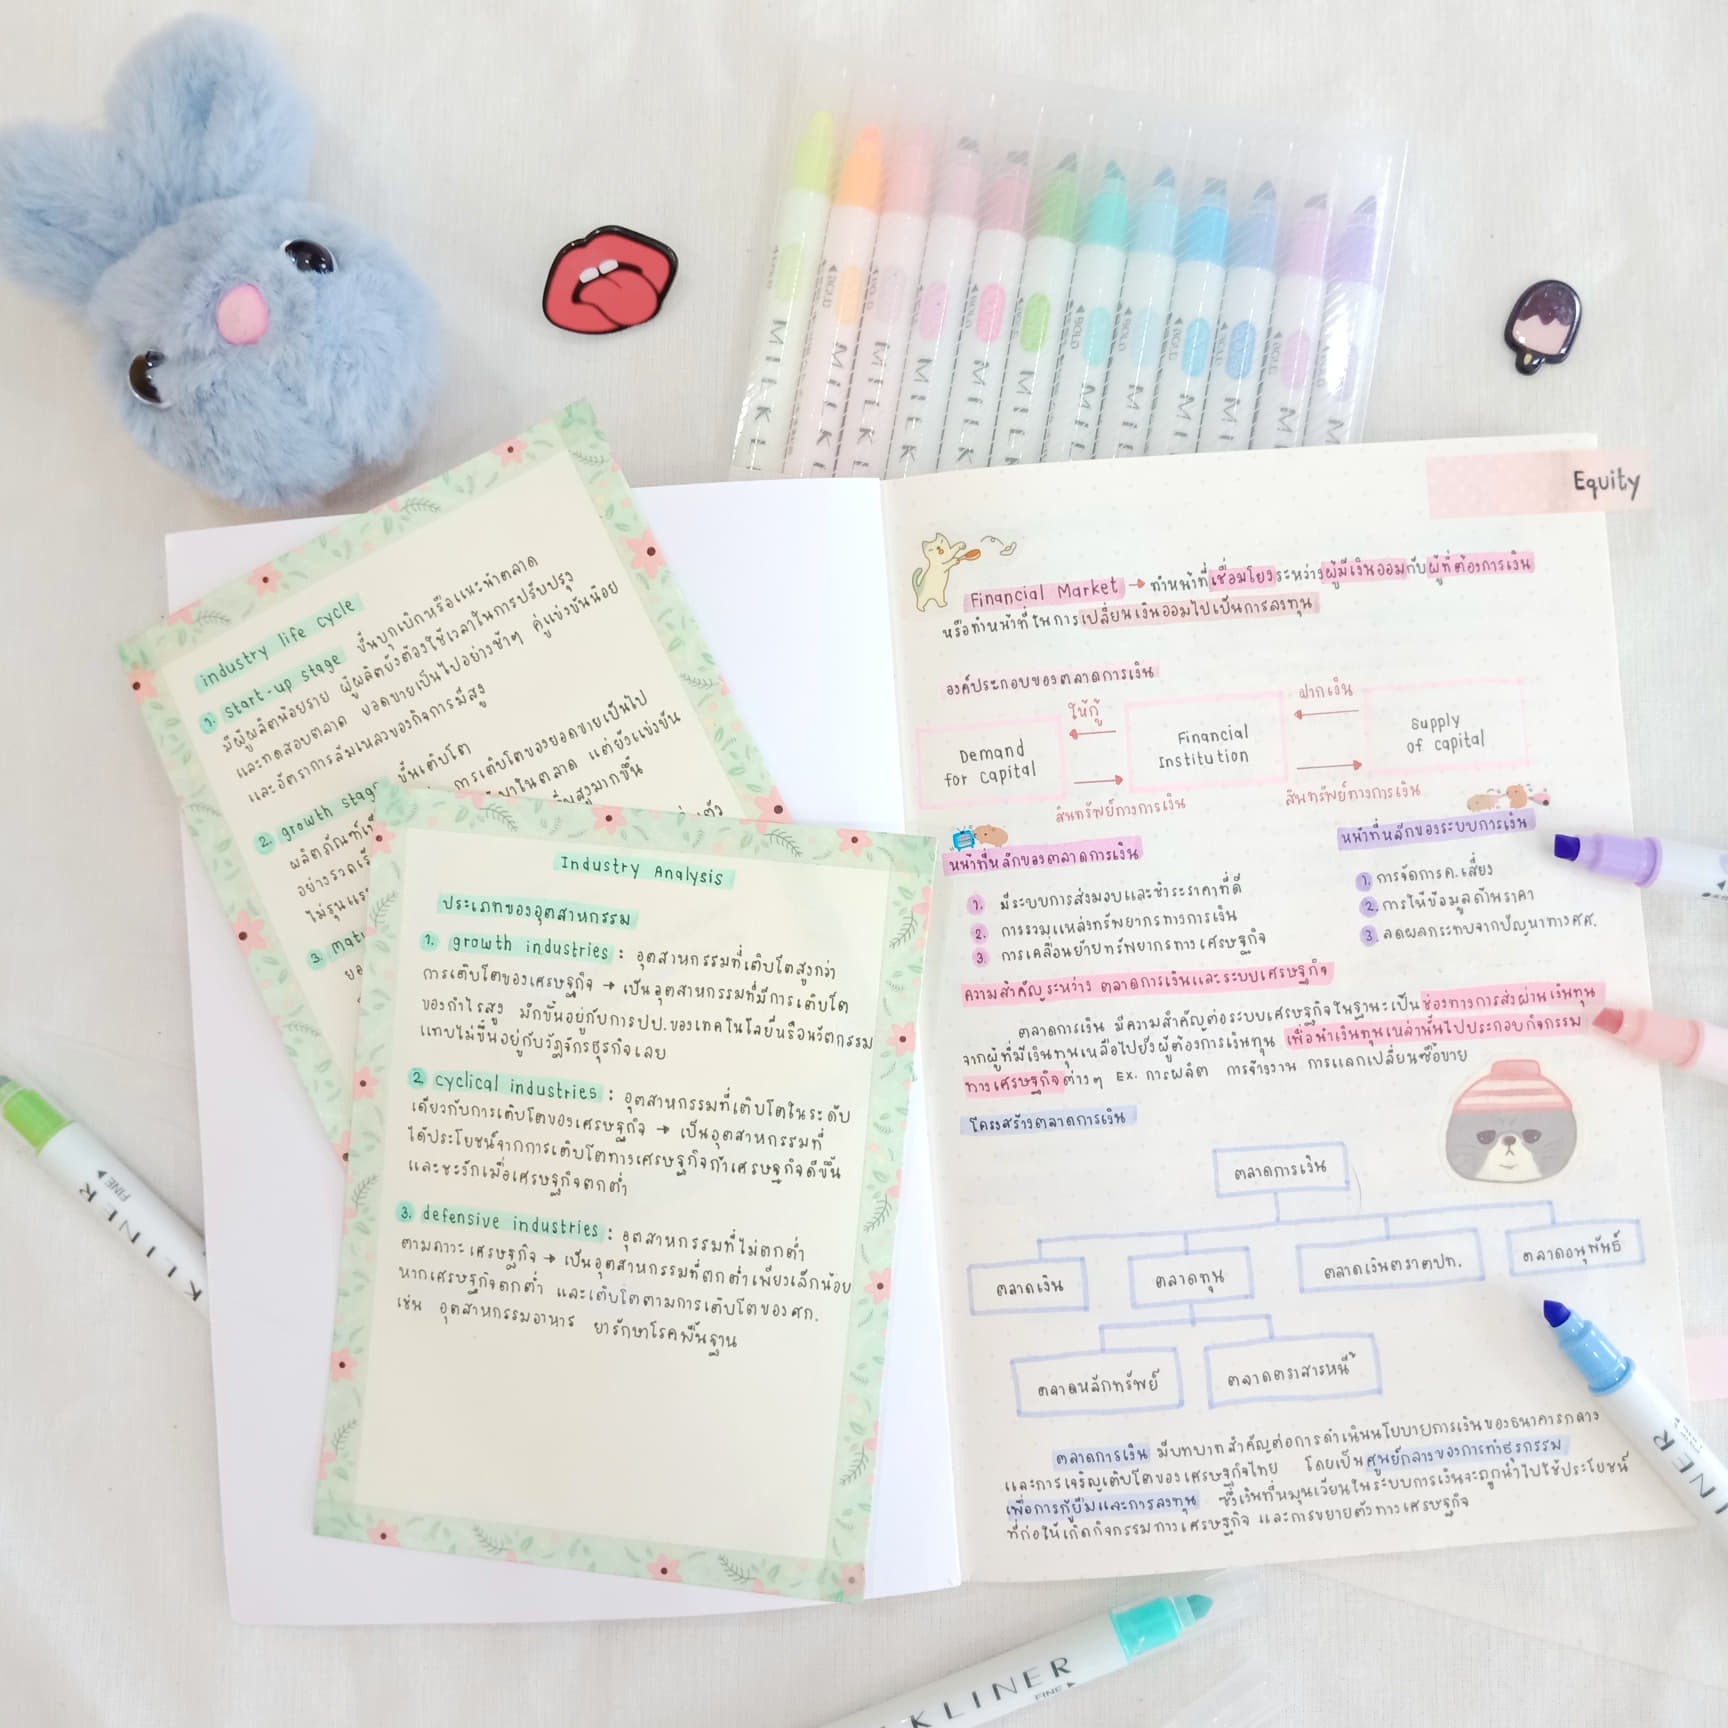 Equity
Financial Market → ทำหน้าที่เชื่อมโยงระหว่างผู้มีเงินออมกับผู้ที่ต้องการเงิน
หรือทำหน้าที่ในการเปลี่ยนเงินออมไปเป็นการลงทุน
องค์ประกอบของตลาดการเงิน
ให้กู้
ฝากเงิน
Demand
for capital
Financial
Institution
Supply
of capital
สินทรัพย์ทางการเงิน
สินทรัพย์ทางการเงิน
หน้าที่หลักของตลาดการเงิน
1. มีระบบการส่งมอบและชำระราคาที่ดี
2. การรวมแหล่งทรัพยากรทางการเงิน
3. การเคลื่อนย้ายทรัพยากรทางเศรษฐกิจ
หน้าที่หลักของระบบการเงิน
1. การจัดการค.เสี่ยง
2. การให้ข้อมูลด้านราคา
3. ลดผลกระทบจากปัญหาทางศศ.
ความสำคัญระหว่าง ตลาดการเงินและระบบเศรษฐกิจ
ตลาดการเงิน มีความสำคัญต่อระบบเศรษฐกิจในฐานะเป็นช่องทางการส่งผ่านเงินทุน
จากผู้ที่มีเงินทุนเหลือไปยังผู้ต้องการเงินทุน เพื่อนำเงินทุนเหล่านั้นไปประกอบกิจกรรม
ทางเศรษฐกิจต่างๆ Ex. การผลิต การจ้างงาน การแลกเปลี่ยนซื้อขาย
โครงสร้างตลาดการเงิน
ตลาดการเงิน
ตลาดเงิน
ตลาดทุน
ตลาดเงินตราตปท.
ตลาดอนุพันธ์
ตลาดหลักทรัพย์
ตลาดตราสารหนี้
ตลาดการเงิน มีบทบาทสำคัญต่อการดำเนินนโยบายการเงินของธนาคารกลาง
และการเจริญเติบโตของเศรษฐกิจไทย โดยเป็นศูนย์กลางของการทำธุรกรรม
เพื่อการกู้ยืมและการลงทุน ซึ่งเงินที่หมุนเวียนในระบบการเงินจะถูกนำไปใช้ประโยชน์
ที่ก่อให้เกิดกิจกรรมทางเศรษฐกิจ และการขยายตัวทางเศรษฐกิจ
industry life cycle
1. start-up stage ขั้นบุกเบิกหรือแนะนำตลาด
มีผู้ผลิตน้อยราย ผู้ผลิตยังต้องใช้เวลาในการปรับปรุง
และทดสอบตลาด ยอดขายเป็นไปอย่างช้าๆ คู่แข่งขันน้อย
และอัตราการล้มเหลวของกิจการมีสูง
2. growth stage ขั้นเติบโต
การเติบโตของยอดขายเป็นไป
อย่างรวดเร็
ในตลาด แต่ยังแข่งขัน
ไม่รุนแร
สูงมากขึ้น
3. mat
Industry Analysis
ประเภทของอุตสาหกรรม
1. growth industries : อุตสาหกรรมที่เติบโตสูงกว่า
การเติบโตของเศรษฐกิจ → เป็นอุตสาหกรรมที่มีการเติบโต
ของกำไรสูง มักขึ้นอยู่กับการปป.ของเทคโนโลยีหรือนวัตกรรม
แทบไม่ขึ้นอยู่กับวัฏจักรธุรกิจเลย
2. cyclical industries : อุตสาหกรรมที่เติบโตในระดับ
เดียวกับการเติบโตของเศรษฐกิจ → เป็นอุตสาหกรรมที่
ได้ประโยชน์จากการเติบโตทางเศรษฐกิจถ้าเศรษฐกิจดีขึ้น
และชะงักเมื่อเศรษฐกิจตกต่ำ
3. defensive industries : อุตสาหกรรมที่ไม่ตกต่ำ
ตามภาวะเศรษฐกิจ → เป็นอุตสาหกรรมที่ตกต่ำเพียงเล็กน้อย
หากเศรษฐกิจตกต่ำ และเติบโตตามการเติบโตของศก.
เช่น อุตสาหกรรมอาหาร ยารักษาโรคพื้นฐาน
KLINER
FINE
KLINER
FINE